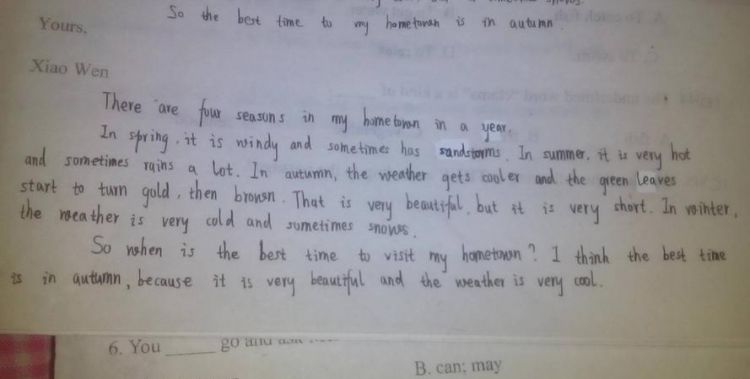 So the best time to my hometown is in autumn
Yours,
Xiao Wen
There are four seasons in my hometown in a year.
In spring, it is windy and sometimes has sandstorms. In summer, it is very hot
and sometimes rains a lot. In autumn, the weather gets cooler and the green leaves
start to turn gold, then brown. That is very beautiful, but it is very short. In winter,
the weather is very cold and sometimes snows.
So when is the best time to visit my hometown? I think the best time
is in autumn, because it is very beautiful and the weather is very cool.
6. You ____ go and
B. can; may